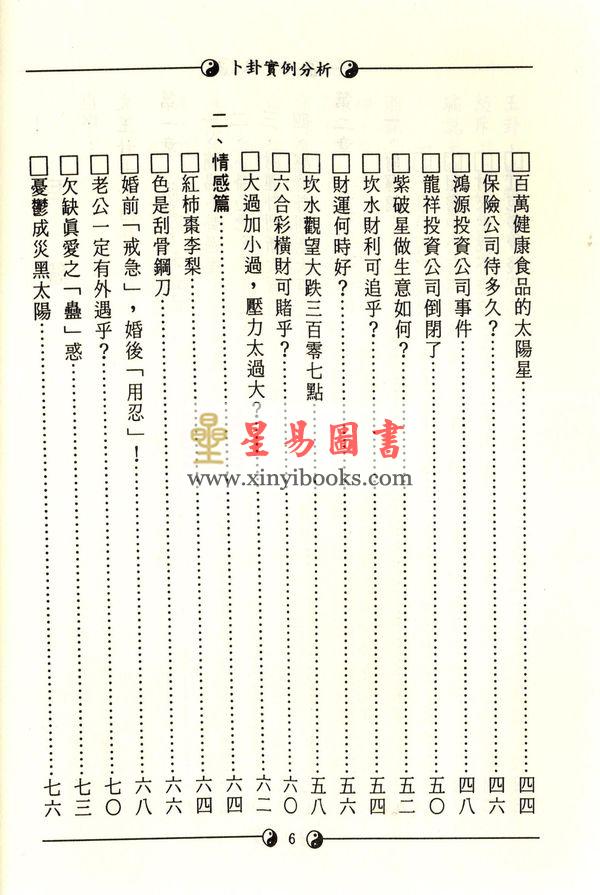 卜卦實例分析
□百萬健康食品的太陽星……四四
□保險公司待多久？……四六
□鴻源投資公司事件……四八
□龍祥投資公司倒閉了……五〇
□紫破星做生意如何？……五二
□坎水財利可追乎？……五四
□財運何時好？……五六
□坎水觀望大跌三百零七點……五八
□六合彩橫財可賭乎？……六〇
□大過加小過，壓力太過大？……六二
二、情感篇……六四
□紅柿棗李梨……六四
□色是刮骨鋼刀……六六
□婚前「戒急」，婚後「用忍」！……六八
□老公一定有外遇乎？……七〇
□欠缺眞愛之「蠱」惑……七三
□憂鬱成災黑太陽……七六
星易圖書
www.xinyibooks.com
6